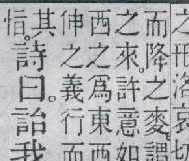 洛哀切
而降之麥謂
之來許意如
西之爲東西
伸之義行而
其
恉。詩曰。詒我